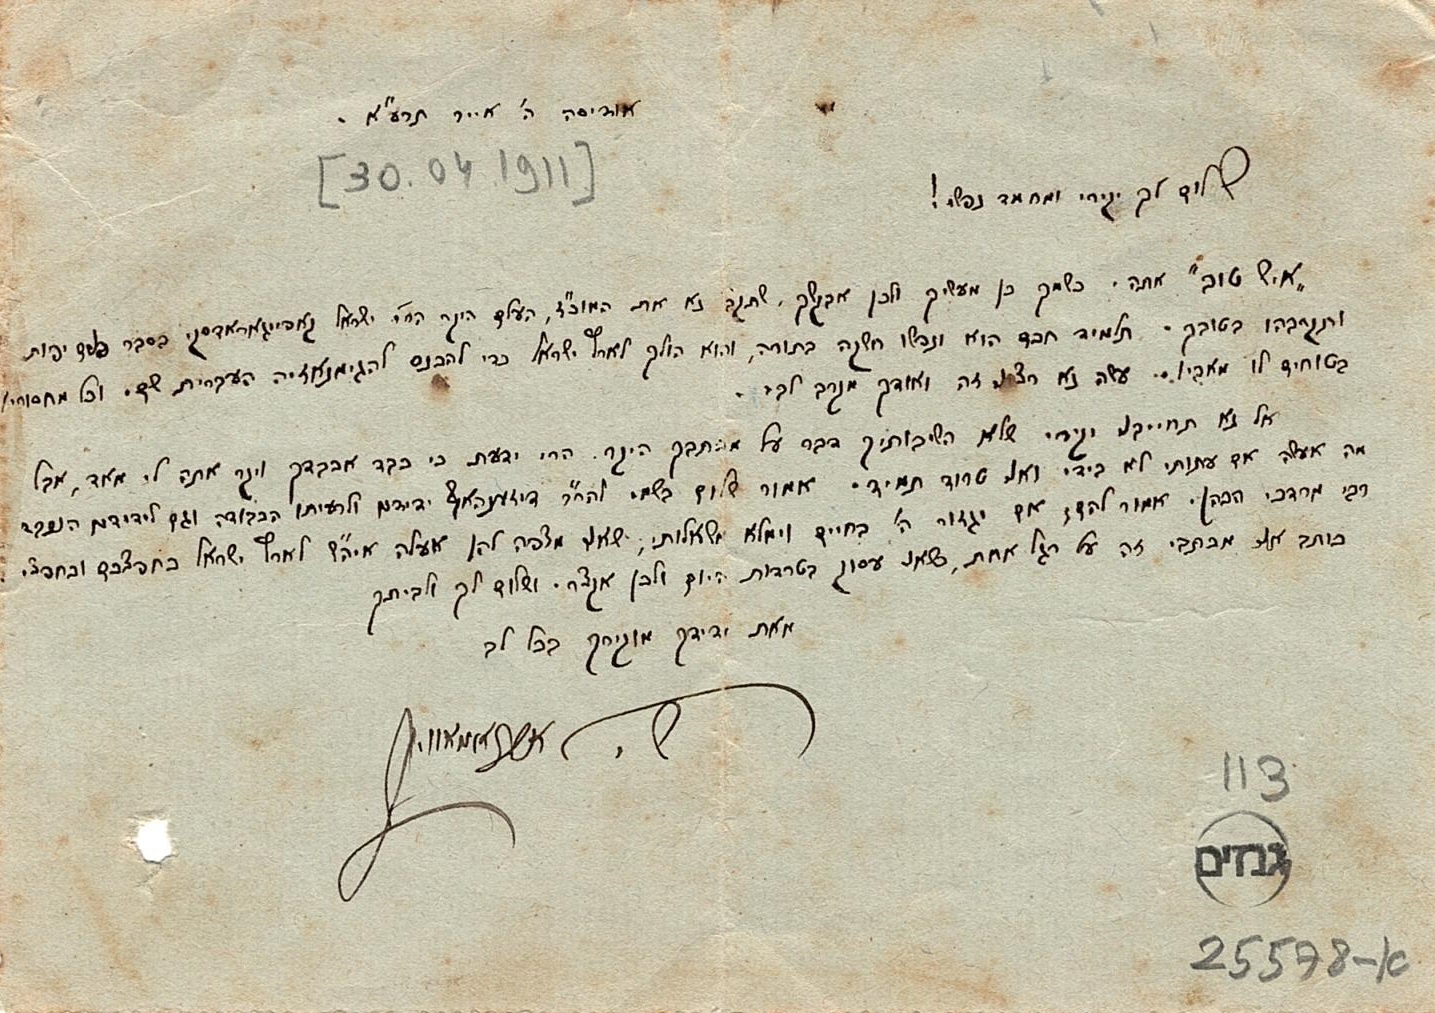 אודיסה ה' אייר תרע"א .
[30.04.1911]
שלום לך יקירי ומחמד נפשי!
"איש טוב" אתה . כשמך כן מעשיך ולכן אבקשך, שתקבל נא את המוכ"ז, העלם היקר הר' ישראל בסבר פנים יפות
ותקרבהו בטובך . תלמיד חכם הוא ונפשו חשקה בתורה, והוא הולך לארץ ישראל כדי להכנס להגימנאזיה העברית שם. וכל מחסוריו
בטוחים לו מאביו. עשה נא רצוני זה ואודך מקרב לבי .
אל נא תחייבני יקירי שלא השיבותיך דבר על מכתבך היקר. הרי ידעת כי כבד אכבדך ויקר אתה לי מאד, אבל
מה אעשה אם עתותי לא בידי ואני טרוד תמיד. אמור שלום בשמי להר"ר דיזענהאף ידידים ולרעיתו הכבודה וגם לידידים הנכבד
רבי מרדכי הכהן. אמור להם אם יגזור ה' בחיים וימלא משאלותי, שאני מצפה להן אעלה אי"ה לארץ ישראל כחפצכם וכחפצי.
כותב אני מכתבי זה על רגל אחת, שאני עסוק בטרדות היום ולכן אקצר. ושלום לך ולביתך
מאת ידידך מוקירך בכל לב
ש. י. אבראמאוויץ
113
גנזים
25578-א